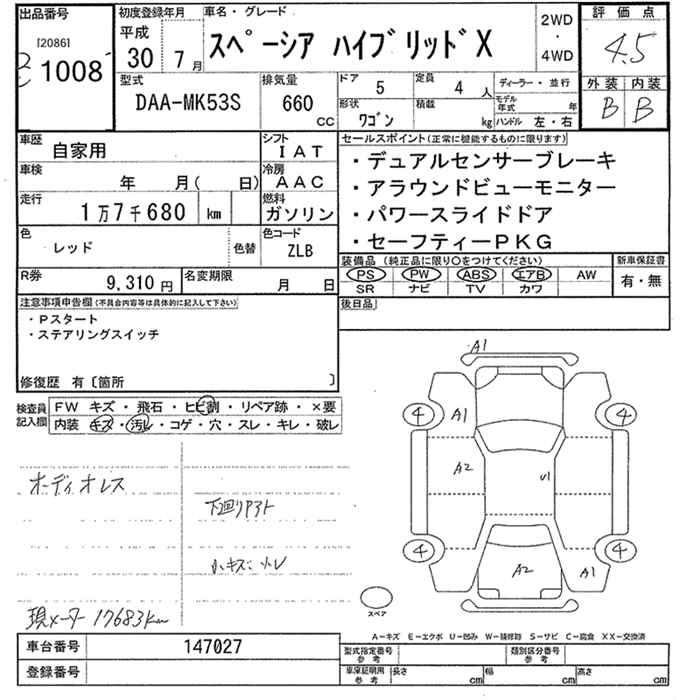 出品番号
[20861
1008
初度登録年月
平成
30 7月
車名・グレード
スペーシア ハイブリッドX
2WD
・
4WD
評価点
4.5
型式
DAA-MK53S
排気量
660
cc
ドア
5
定員
4人
形状
ワゴン
積載
kg
ディーラー・並行
モデル年式 年
ハンドル 左・右
外装 内装
B B
車歴
自家用
シフト
IAT
車検
年 月( 日)
冷房
AAC
走行
1万7千680 km
燃料
ガソリン
色
レッド
色替
色コード
ZLB
R券
9,310円
名変期限
月 日
セールスポイント(正常に機能するものに限ります)
・デュアルセンサーブレーキ
・アラウンドビューモニター
・パワースライドドア
・セーフティーPKG
装備品(純正品に限り○をつけてください)
PS PW ABS エアB AW
SR ナビ TV カワ
新車保証書
有・無
後日品
注意事項申告欄(不具合内容等は具体的に記入して下さい)
・Pスタート
・ステアリングスイッチ
修復歴 有〔箇所 〕
検査員記入欄
FW キズ・飛石・ヒビ割・リペア跡・×要
内装 キズ・汚レ・コゲ・穴・スレ・キレ・破レ
オーディオレス
下廻りサビ
小キズ
現メーター17683km
A1
4
A1
4
A2
U1
4
A2
A1
4
スペア
A-キズ E-エクボ U-凹み W-補修跡 S-サビ C-腐食 XX-交換済
車台番号
147027
登録番号
型式指定番号
参考
類別区分番号
参考
車庫証明用
参考
長さ cm
幅 cm
高さ cm